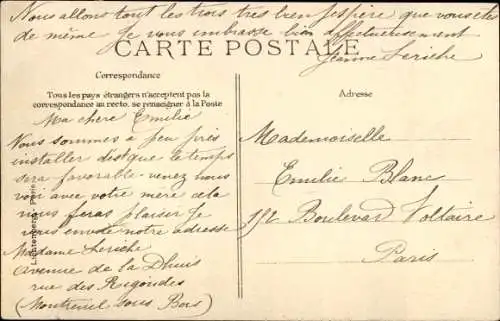 Nous allons tout les trois très bien j'espère que vous etes
de même Je vous embrasse bien affectueusement
Jeanne Leriche
CARTE POSTALE
Correspondance
Tous les pays étrangers n'acceptent pas la
correspondance au recto, se renseigner à la Poste
Ma chere Emilie
Nous sommes a peu près
installer dès que le temps
sera favorable venez nous
voir avec votre mère cela
nous feras plaisir Je
vous envoie notre adresse
Madame Leriche
avenue de la Dhuis
rue des Rigondes
(Montreuil sous Bois)
Adresse
Mademoiselle
Emilie Blanc
192 Boulevard Voltaire
Paris